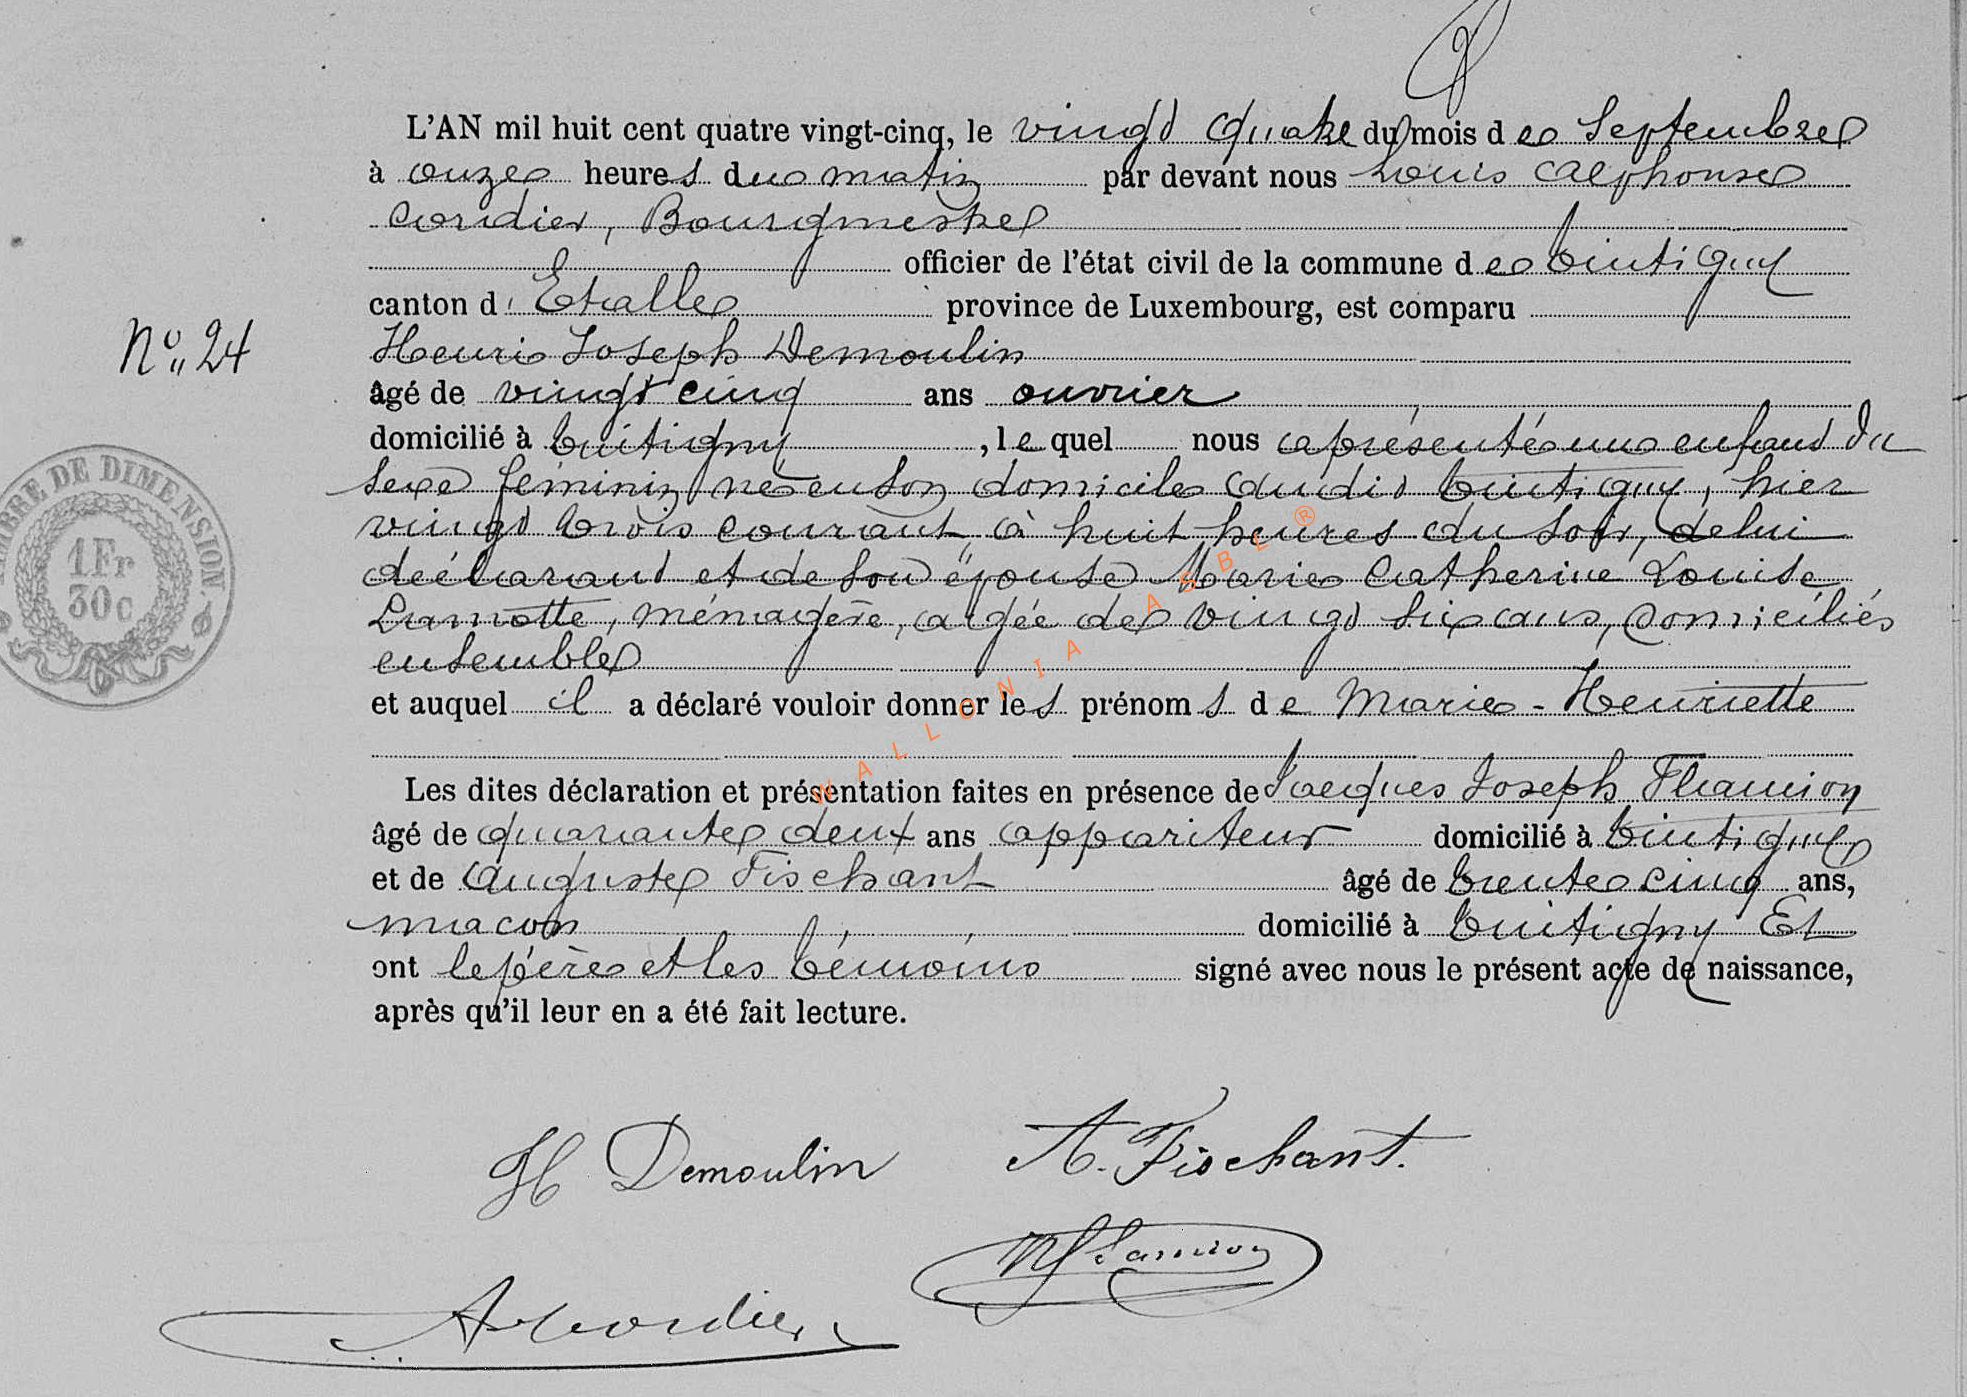 L'AN mil huit cent quatre vingt-cinq, le vingt quatre du mois de Septembre
à onze heures du matin par devant nous Louis Alphonse
Cordier, Bourgmestre
officier de l'état civil de la commune de Tintigny
canton d'Etalle province de Luxembourg, est comparu
N° 24
Henri Joseph Demoulin
âgé de vingt cinq ans ouvrier
domicilié à Tintigny, lequel nous a présenté un enfant du
sexe féminin né en son domicile audit Tintigny, hier
vingt trois courant, à huit heures du soir, de lui
déclarant et de son épouse Marie Catherine Louise
Lamotte, ménagère, agée de vingt six ans, domiciliés
ensemble
et auquel il a déclaré vouloir donner les prénoms de Marie-Henriette
Les dites déclaration et présentation faites en présence de Jacques Joseph Flamion
âgé de quarante deux ans appariteur domicilié à Tintigny
et de Auguste Fischant âgé de trente cinq ans,
macon domicilié à Tintigny Et
ont le père et les témoins signé avec nous le présent acte de naissance,
après qu'il leur en a été fait lecture.
TIMBRE DE DIMENSION.
1 Fr
30 c
WALLONIA ASBL ®
H Demoulin A. Fischant.
Flamion
A Cordier